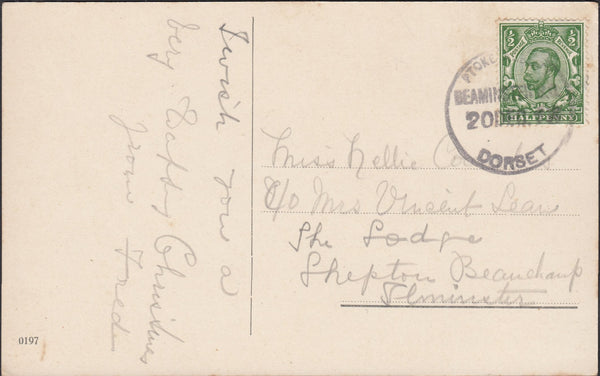 I wish you a
very Happy Christmas
from Fred
0197
1/2 1/2
HALFPENNY
STOKE
BEAMIN
20
DORSET
Miss Nellie
C/o Mrs Vincent Lean
The Lodge
Shepton Beauchamp
Ilminster